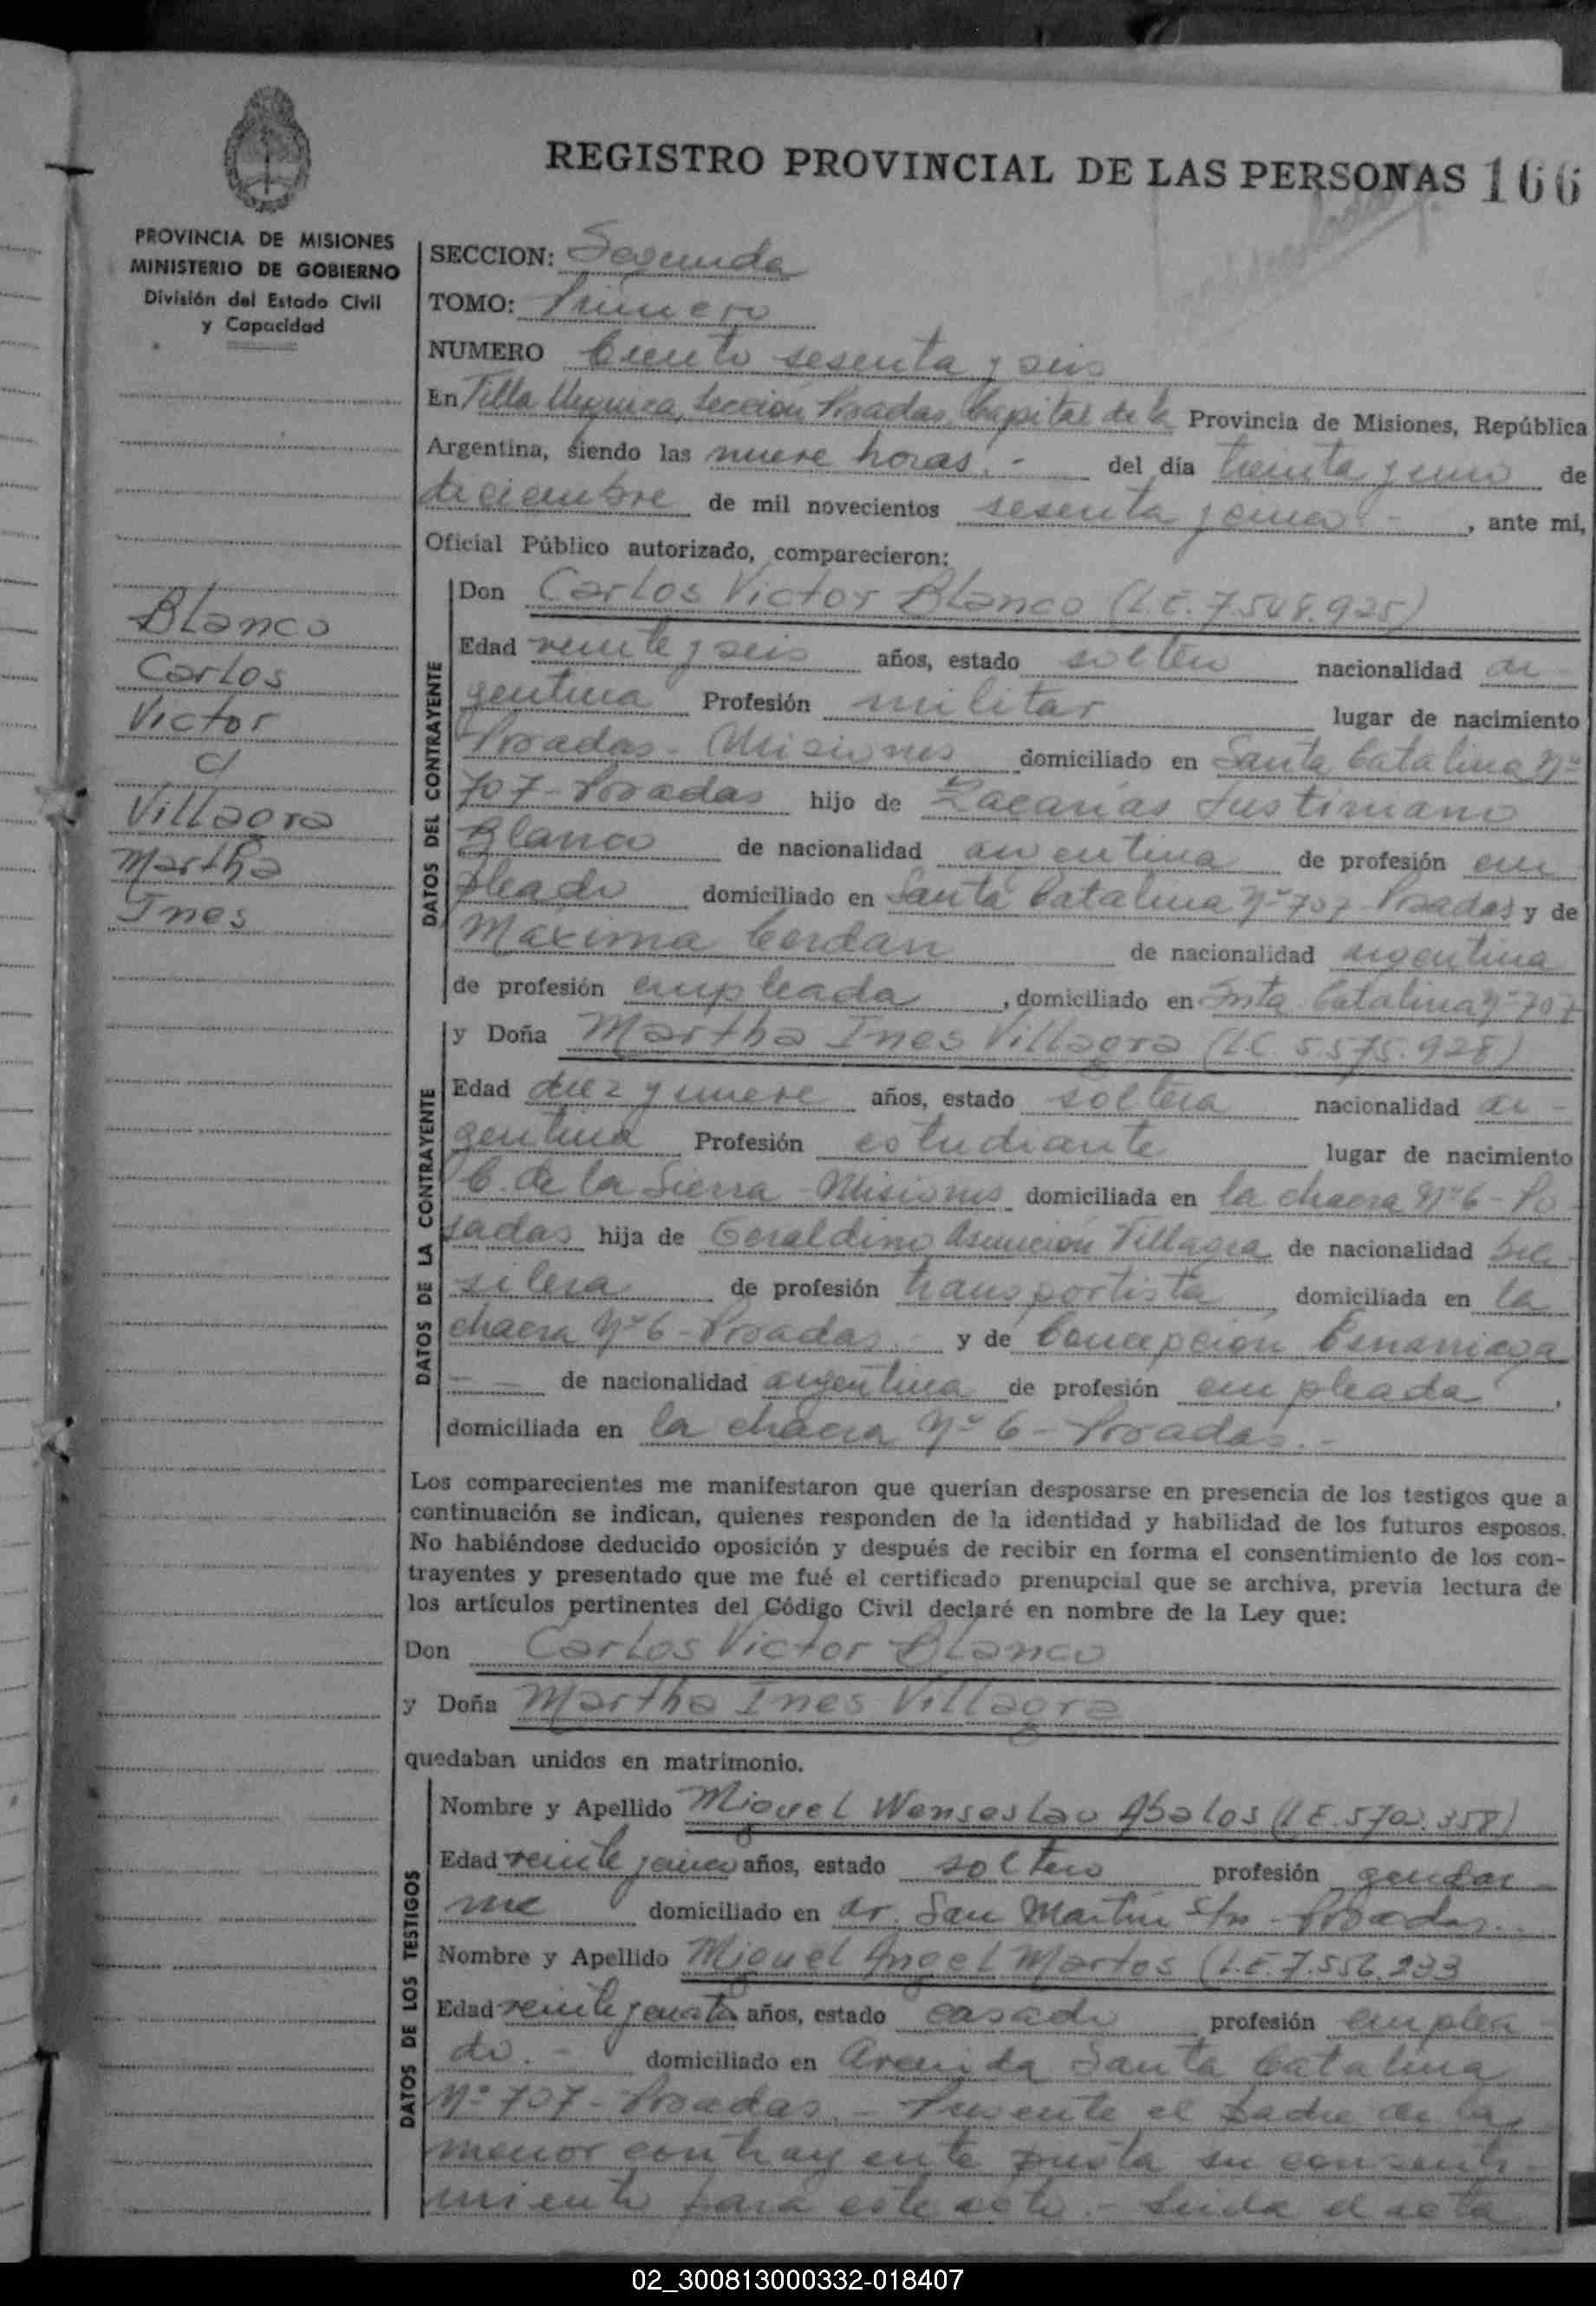 REGISTRO PROVINCIAL DE LAS PERSONAS 166
PROVINCIA DE MISIONES
MINISTERIO DE GOBIERNO
División del Estado Civil
y Capacidad
SECCION: Segunda
TOMO: Primero
NUMERO Ciento sesenta y seis
En Villa Urquiza, Sección Posadas, Capital de la Provincia de Misiones, República
Argentina, siendo las nueve horas.- del día treinta y uno de
diciembre de mil novecientos sesenta y cinco.-, ante mi,
Oficial Público autorizado, comparecieron:
Blanco
Carlos
Victor
c/
Villagra
Martha
Ines
DATOS DEL CONTRAYENTE
Don Carlos Victor Blanco (L.E. 7.548.925)
Edad veinte y seis años, estado soltero nacionalidad ar-
gentina Profesión militar lugar de nacimiento
Posadas - Misiones domiciliado en Santa Catalina Nº
707 - Posadas hijo de Zacarías Justiniano
Blanco de nacionalidad argentina de profesión em-
pleado domiciliado en Santa Catalina Nº 707 Posadas y de
Máxima Cordan de nacionalidad argentina
de profesión empleada, domiciliado en Snta Catalina Nº 707
DATOS DE LA CONTRAYENTE
y Doña Martha Ines Villagra (L.C. 5.575.928)
Edad diez y nueve años, estado soltera nacionalidad ar-
gentina Profesión estudiante lugar de nacimiento
C. de la Sierra - Misiones domiciliada en la chacra Nº 6 - Po-
sadas hija de Geraldino Asunción Villagra de nacionalidad bra-
silera de profesión transportista, domiciliada en la
chacra Nº 6 - Posadas - y de Concepción
- - de nacionalidad argentina de profesión empleada,
domiciliada en la chacra Nº 6 - Posadas.-
Los comparecientes me manifestaron que querían desposarse en presencia de los testigos que a
continuación se indican, quienes responden de la identidad y habilidad de los futuros esposos.
No habiéndose deducido oposición y después de recibir en forma el consentimiento de los con-
trayentes y presentado que me fué el certificado prenupcial que se archiva, previa lectura de
los artículos pertinentes del Código Civil declaré en nombre de la Ley que:
Don Carlos Victor Blanco
y Doña Martha Ines Villagra
quedaban unidos en matrimonio.
DATOS DE LOS TESTIGOS
Nombre y Apellido Miguel Wenseslao Abalos (L.E. 5.702.358)
Edad veinte y cinco años, estado soltero profesión gendar-
me domiciliado en Av. San Martín s/n - Posadas.-
Nombre y Apellido Miguel Angel Martos (L.E. 7.556.233
Edad veinte y cuatro años, estado casado profesión emplea-
do.- domiciliado en Avenida Santa Catalina
Nº 707 - Posadas.- Presente el padre de la
menor contrayente presta su consenti-
miento para este acto.- Leida el acta
02_300813000332-018407